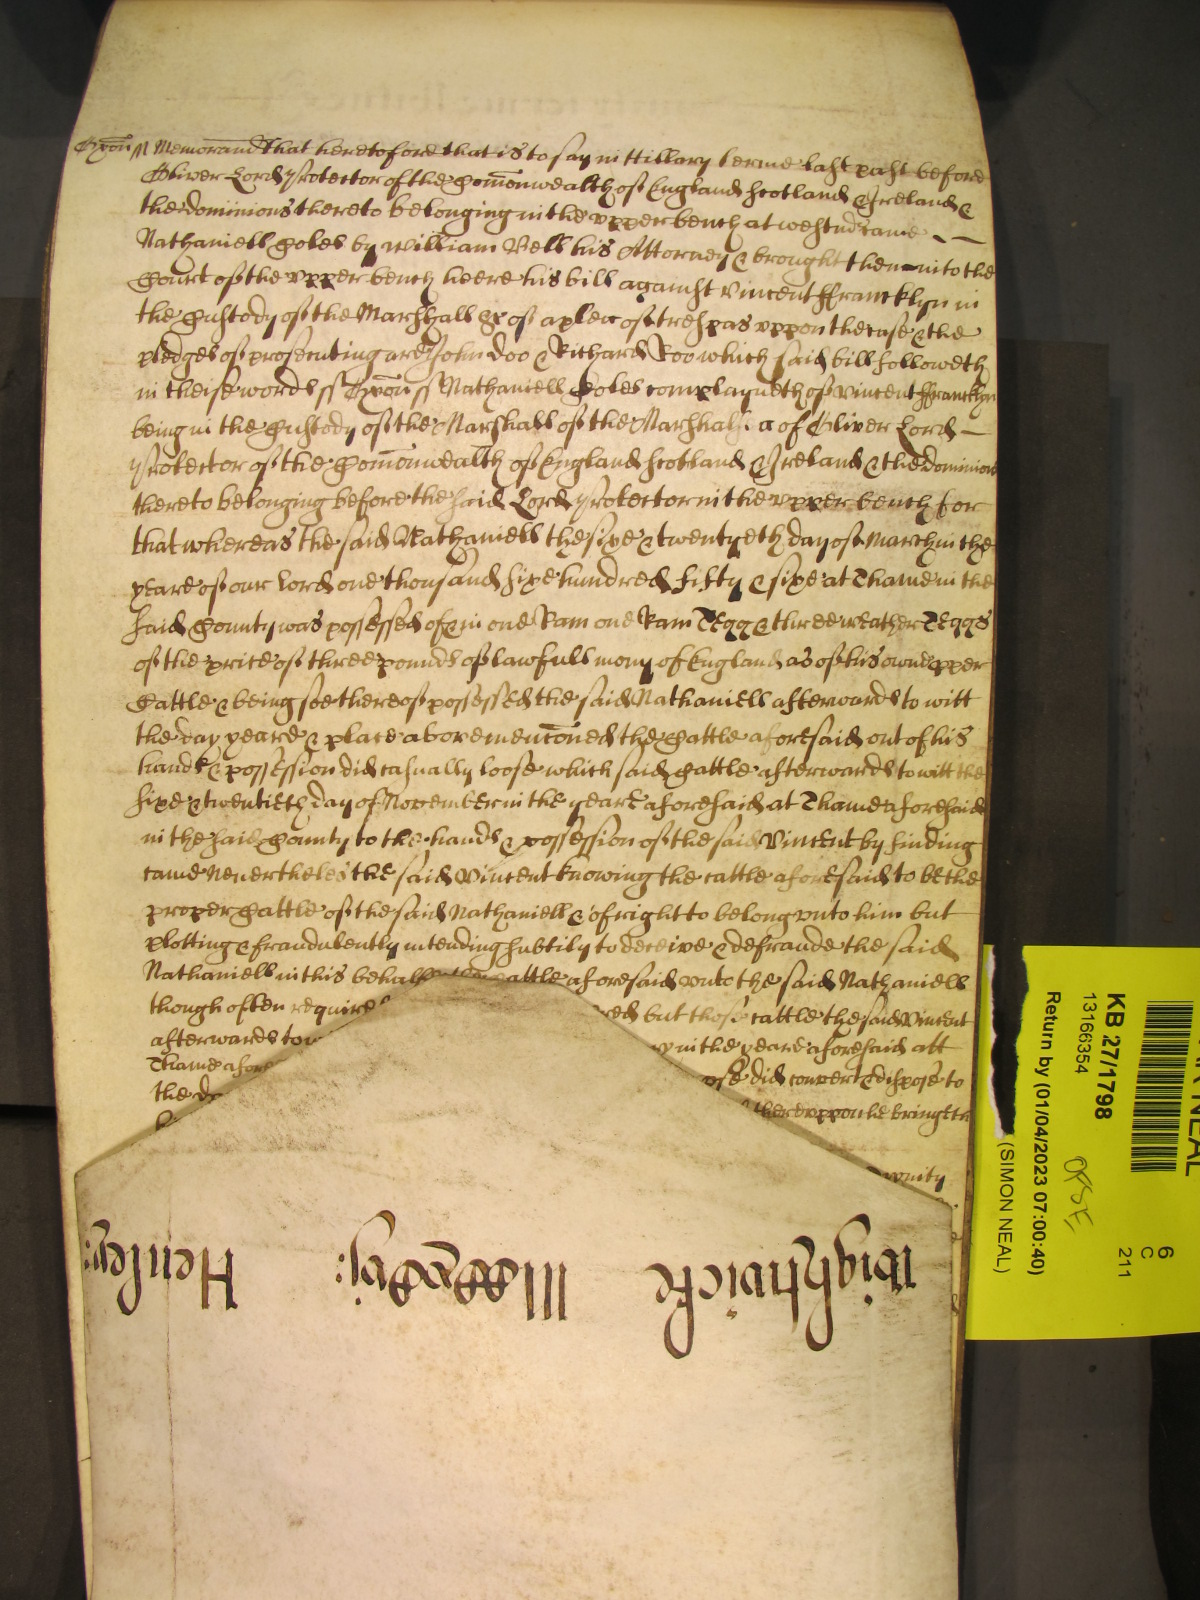 Oxon̄ M Memorand That heretofore that is to say in Hillary terme last past before
Oliver Lord Protector of the Com̄onwealth of England Scotland & Ireland &
the dominions thereto belonging in the vpper bench at westm̄ came
Nathaniell Coles by William Bell his Attorney & brought then into the
Court of the vpper bench heere his bill against Vincent ffrancklyn in
the Custody of the Marshall &c of a plea of trespas vppon the case & the
pledges of prosecuting are John Doo & Richard Roo which said bill followeth
in theise words ss Oxon̄ ss Nathaniell Coles complayneth of Vincent ffrancklyn
being in the Custody of the Marshall of the Marshalsea of Oliver Lord
Protector of the Com̄onwealth of England Scotland & Ireland & the dominions
thereto belonging before the said Lord Protector in the vpper bench for
that whereas the said Nathaniell the sixe & twentyeth day of March in the
yeare of our lord one thousand sixe hundred fifty & sixe at Thame in the
said County was possessed of & in one Ram one Ram Tegg & three weather Teggs
of the price of three pounds of lawfull mony of England as of his owne pper
Cattle & being soe thereof possessed the said Nathaniell afterwards to witt
the day yeare & place abovemenc̄oned the Cattle aforesaid out of his
hands & possession did casually loose which said Cattle afterwards to witt the
sixe & twentieth day of November in the yeare aforesaid at Thame aforesaid
in the said County to the hands & possession of the said Vincent by finding
came Neverthelesse the said Vincent knowing the cattle aforesaid to be the
proper Cattle of the said Nathaniell & of right to belong vnto him but
plotting & fraudulently intending subtily to deceive & defraude the said
Nathaniell in this behalf the Cattle aforesaid vnto the said Nathaniell
though often required but those cattle the said Vincent
afterwards to in the yeare aforesaid att
Thame afore did convert & dispose to
the therevppon he bringeth
Wightwicke
Henley:
KB 27/1798
13166354
Return by (01/04/2023 07:00:40)
(SIMON NEAL)
6
C
211
NEAL